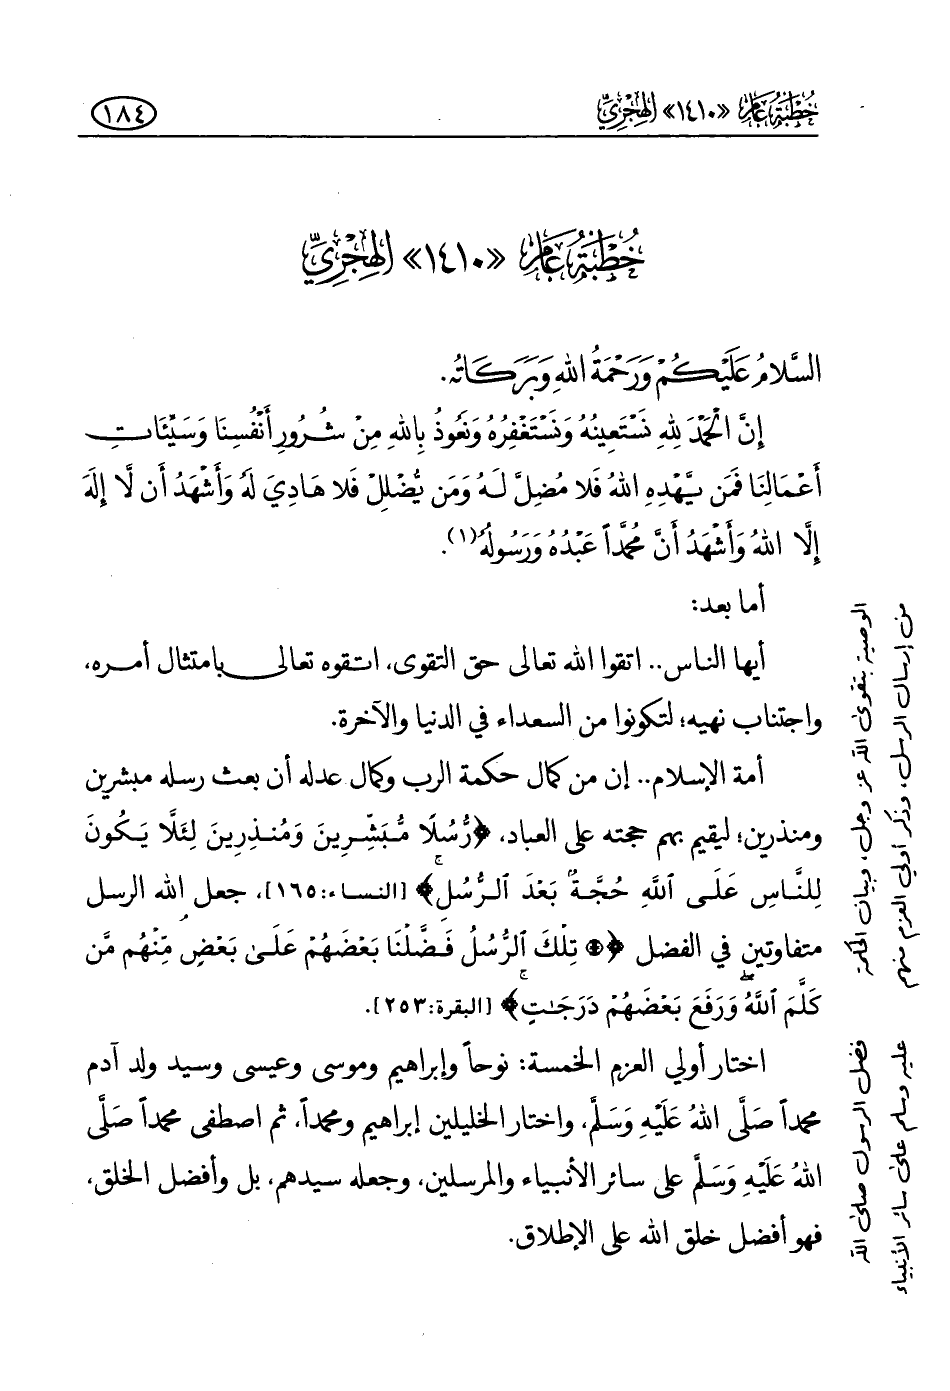 خُطْبَةُ عَامِ «١٤١٠» الهِجْرِيِّ
١٨٤
خُطْبَةُ عَامِ «١٤١٠» الهِجْرِيِّ
السَّلامُ عَلَيْكُمْ وَرَحْمَةُ اللهِ وَبَرَكَاتُه.
إِنَّ الْحَمْدَ لِلهِ نَسْتَعِينُهُ وَنَسْتَغْفِرُهُ وَنَعُوذُ بِاللهِ مِنْ شُرُورِ أَنْفُسِنَا وَسَيِّئَاتِ
أَعْمَالِنَا فَمَن يَهْدِهِ اللهُ فَلا مُضِلَّ لَهُ وَمَن يُضْلِلْ فَلا هَادِيَ لَهُ وَأَشْهَدُ أَن لَّا إِلَهَ
إِلَّا اللهُ وَأَشْهَدُ أَنَّ مُحَمَّداً عَبْدُهُ وَرَسُولُهُ(١).
أما بعد:
أيها الناس.. اتقوا الله تعالى حق التقوى، اتقوه تعالى بامتثال أمره،
واجتناب نهيه؛ لتكونوا من السعداء في الدنيا والآخرة.
أمة الإسلام.. إن من كمال حكمة الرب وكمال عدله أن بعث رسله مبشرين
ومنذرين؛ ليقيم بهم حجته على العباد، ﴿رُّسُلًا مُّبَشِّرِينَ وَمُنذِرِينَ لِئَلَّا يَكُونَ
لِلنَّاسِ عَلَى ٱللَّهِ حُجَّةٌۢ بَعْدَ ٱلرُّسُلِۚ﴾ [النساء:١٦٥]، جعل الله الرسل
متفاوتين في الفضل ﴿۞ تِلْكَ ٱلرُّسُلُ فَضَّلْنَا بَعْضَهُمْ عَلَىٰ بَعْضٍۘ مِّنْهُم مَّن
كَلَّمَ ٱللَّهُۖ وَرَفَعَ بَعْضَهُمْ دَرَجَٰتٍۚ﴾ [البقرة:٢٥٣].
اختار أولي العزم الخمسة: نوحاً وإبراهيم وموسى وعيسى وسيد ولد آدم
محمداً صَلَّى اللهُ عَلَيْهِ وَسَلَّم، واختار الخليلين إبراهيم ومحمداً، ثم اصطفى محمداً صَلَّى
اللهُ عَلَيْهِ وَسَلَّم على سائر الأنبياء والمرسلين، وجعله سيدهم، بل وأفضل الخلق،
فهو أفضل خلق الله على الإطلاق.
الوصية بتقوى الله عز وجل، وبيان الحكمة
من إرسال الرسل، وذكر أولي العزم منهم
فضل الرسول صلى الله
عليه وسلم على سائر الأنبياء